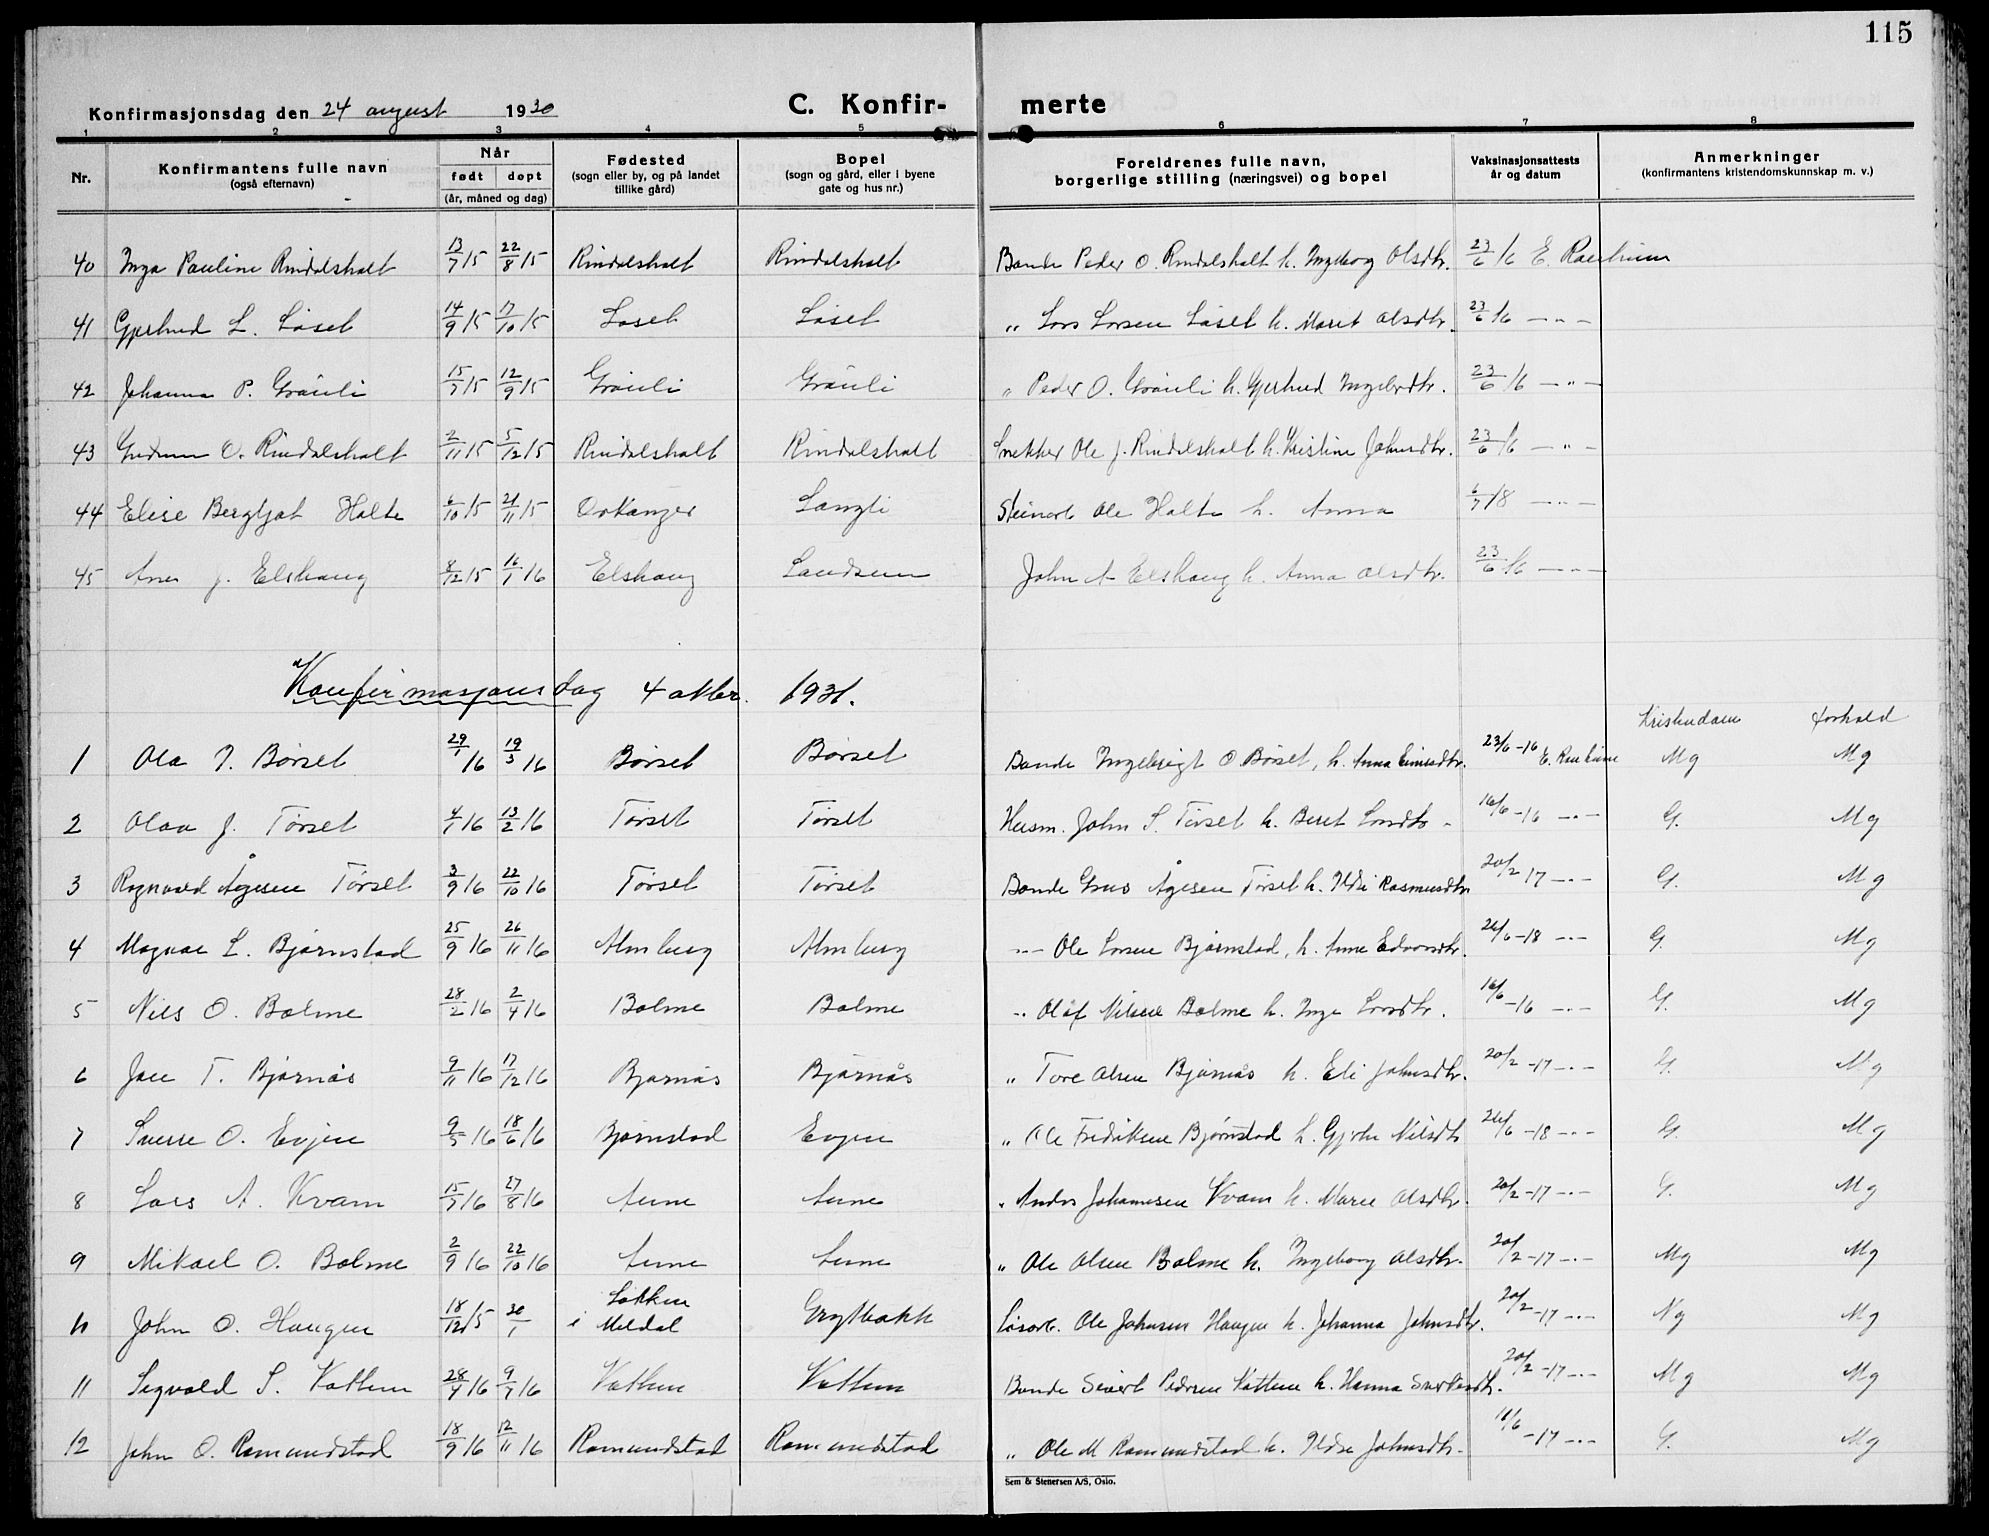 115
Konfirmasjonsdag den 24 august 1930 C. Konfir- merte
1 2 3 4 5 6 7 8
Nr. Konfirmantens fulle navn (også efternavn) Når født døpt (år, måned og dag) Fødested (sogn eller by, og på landet tillike gård) Bopel (sogn og gård, eller i byene gate og hus nr.) Foreldrenes fulle navn, borgerlige stilling (næringsvei) og bopel Vaksinasjonsattests år og datum Anmerkninger (konfirmantens kristendomskunnskap m. v.)
40 Inga Pauline Rindalsholt 13/7 15 22/8 15 Rindalsholt Rindalsholt Bonde Peder O. Rindalsholt h. Ingeborg Olsdtr. 23/6 16 E.
41 Gjertrud L. Løset 14/9 15 17/10 15 Løset Løset " Lars Larsen Løset h. Marit Olsdtr. 23/6 16 — " —
42 Johanna P. Grønli 15/7 15 12/9 15 Grønli Grønli " Peder O. Grønli h. Gjertrud Ingebrdtr. 23/6 16 — " —
43 Gudrun O. Rindalsholt 2/11 15 5/12 15 Rindalsholt Rindalsholt Snekker Ole J. Rindalsholt h. Kristine Johnsdtr. 23/6 16 — " —
44 Elise Bergljot Holte 6/10 15 21/11 15 Orkanger Langli Steinarb Ole Holte h. Anna 6/7 18 — " —
45 Ane J. Elshaug 8/12 15 16/1 16 Elshaug Landsem John A Elshaug h. Anna Olsdtr. 23/6 16 — " —
Konfirmasjonsdag 4 oktbr. 1931.
Kristendom forhold
1 Ola I. Børset 29/1 16 19/3 16 Børset Børset Bonde Ingebrigt O. Børset, h. Anna 23/6-16 E. Mg Mg
2 Olaa J. Tørset 4/1 16 13/2 16 Tørset Tørset Husm. John S. Tørset h. Beret Larsdtr - 16/6-16 — " — G. Mg
3 Ragnvald Ågesen Tørset 3/9 16 22/10 16 Tørset Tørset Bonde Ågesen Tørset h. Ildri Rasmusdtr 20/2 17 — " — G. Mg
4 Magnar L. Bjørnstad 25/9 16 26/11 16 Almberg Almberg — " — Ole Larsen Bjørnstad, h. Anne Edvardsdtr. 26/6-18 — " — G. Mg
5 Nils O. Bolme 28/2 16 2/4 16 Bolme Bolme " Olaf Nilsen Bolme h. Inga Larsdtr. 16/6-16 — " — G. Mg
6 Jon T. Bjørnås 9/11 16 17/12 16 Bjørnås Bjørnås " Tore Olsen Bjørnås h. Eli Johnsdtr. 20/2-17 — " — G. Mg
7 Sverre O. Evjen 9/5 16 18/6 16 Bjørnstad Evjen " Ole Fredriksen Bjørnstad h. Gjertr. Nilsdtr 26/6-18 — " — G. Mg
8 Lars A. Kvam 15/7 16 27/8 16 Aune Aune " Anders Johannesen Kvam h. Marie Olsdtr. 20/2-17 — " — G. Mg
9 Mikael O. Bolme 2/9 16 22/10 16 Aune Aune " Ole Olsen Bolme h. Ingeborg Olsdtr. 20/2-17 — " — Mg Mg
10 John O. Haugen 18/12 15 30/1 Løkken i Meldal Grytbakk Løsarb. Ole Johnsen Haugen h. Johanna Johnsdtr. 20/2-17 — " — Ng Mg
11 Sigvald S. Vattem 28/4 16 9/7 16 Vattem Vattem Bonde Sivert Pedersen Vattem h. Hanna 20/2-17 — " — Mg Mg
12 John O. Romundstad 18/9 16 12/11 16 Romundstad Romundstad " Ole M Romundstad h. Ildri Johnsdtr. 16/6-17 — " — G. Mg
Sem & Stenersen A/S, Oslo.